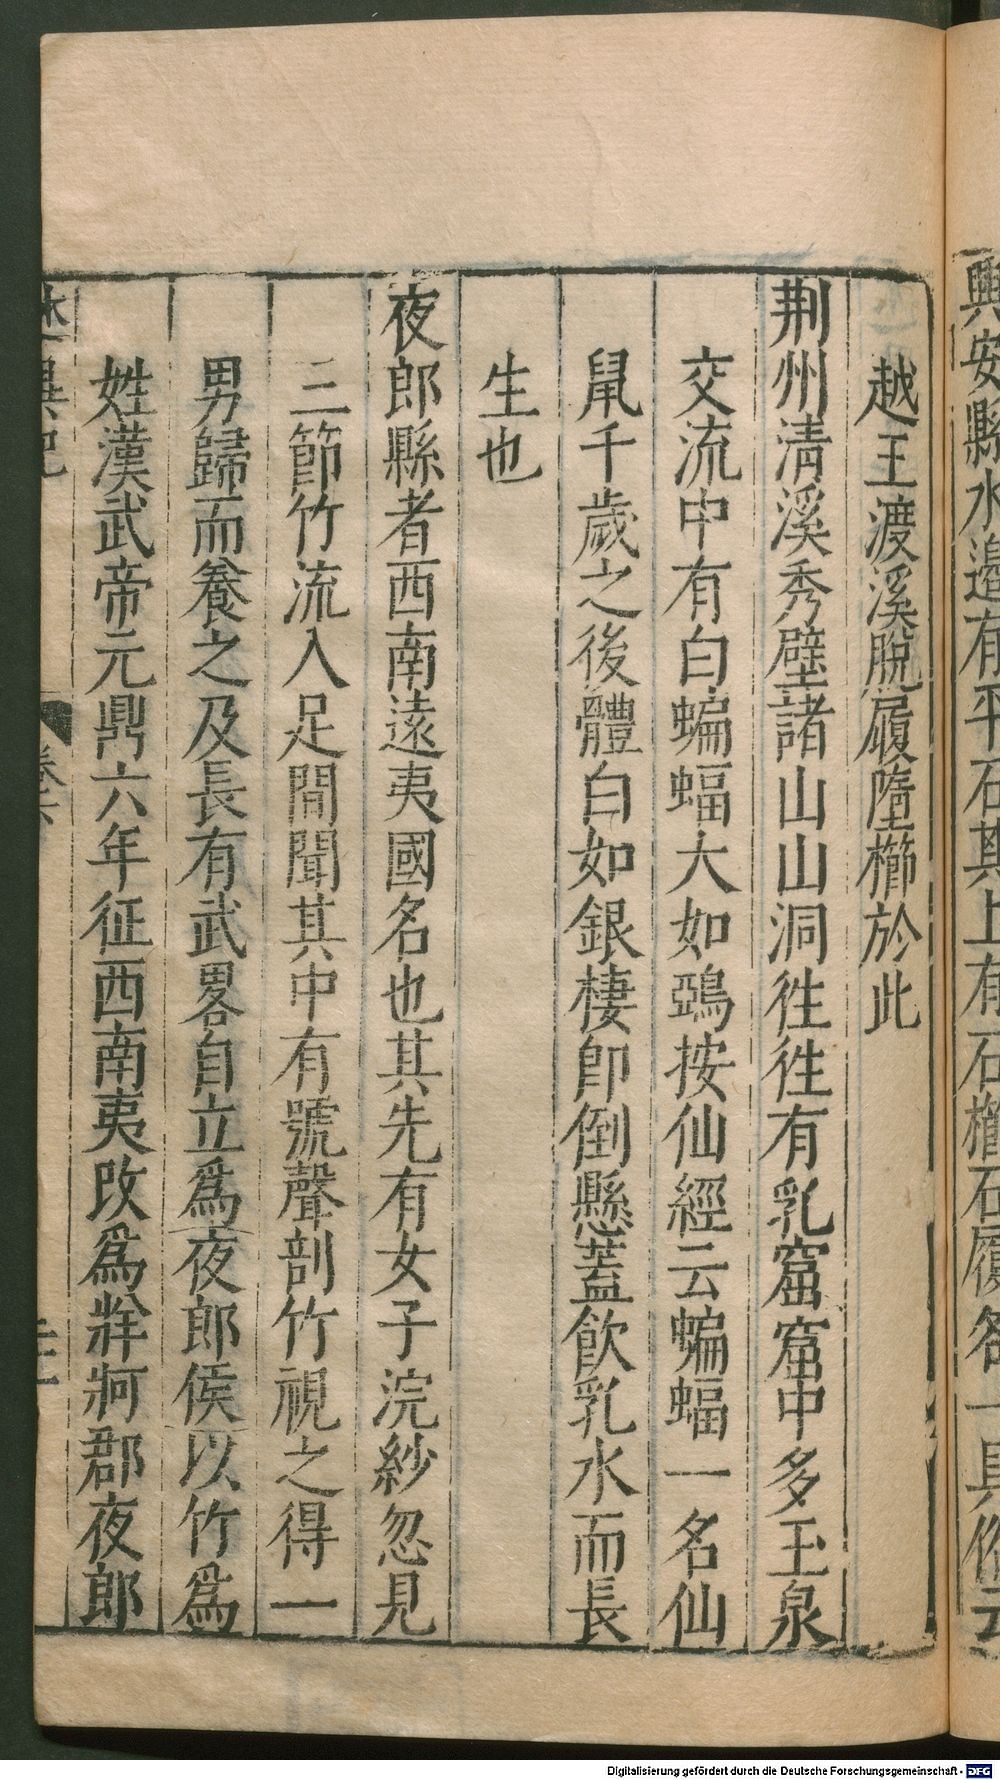 興安縣水邊有平石其上有石櫛石履各一具俗云
越王渡溪脫履墮櫛於此
荆州清溪秀壁諸山山洞徃徃有乳窟窟中多玉泉
交流中有白蝙蝠大如鵶按仙經云蝙蝠一名仙
鼠千歲之後體白如銀棲卽倒懸蓋飲乳水而長
生也
夜郎縣者西南遠夷國名也其先有女子浣紗忽見
三節竹流入足間聞其中有號聲剖竹視之得一
男歸而養之及長有武畧自立爲夜郎侯以竹爲
姓漢武帝元鼎六年征西南夷改爲牂牁郡夜郎
述異記
Digitalisierung gefördert durch die Deutsche Forschungsgemeinschaft - DFG